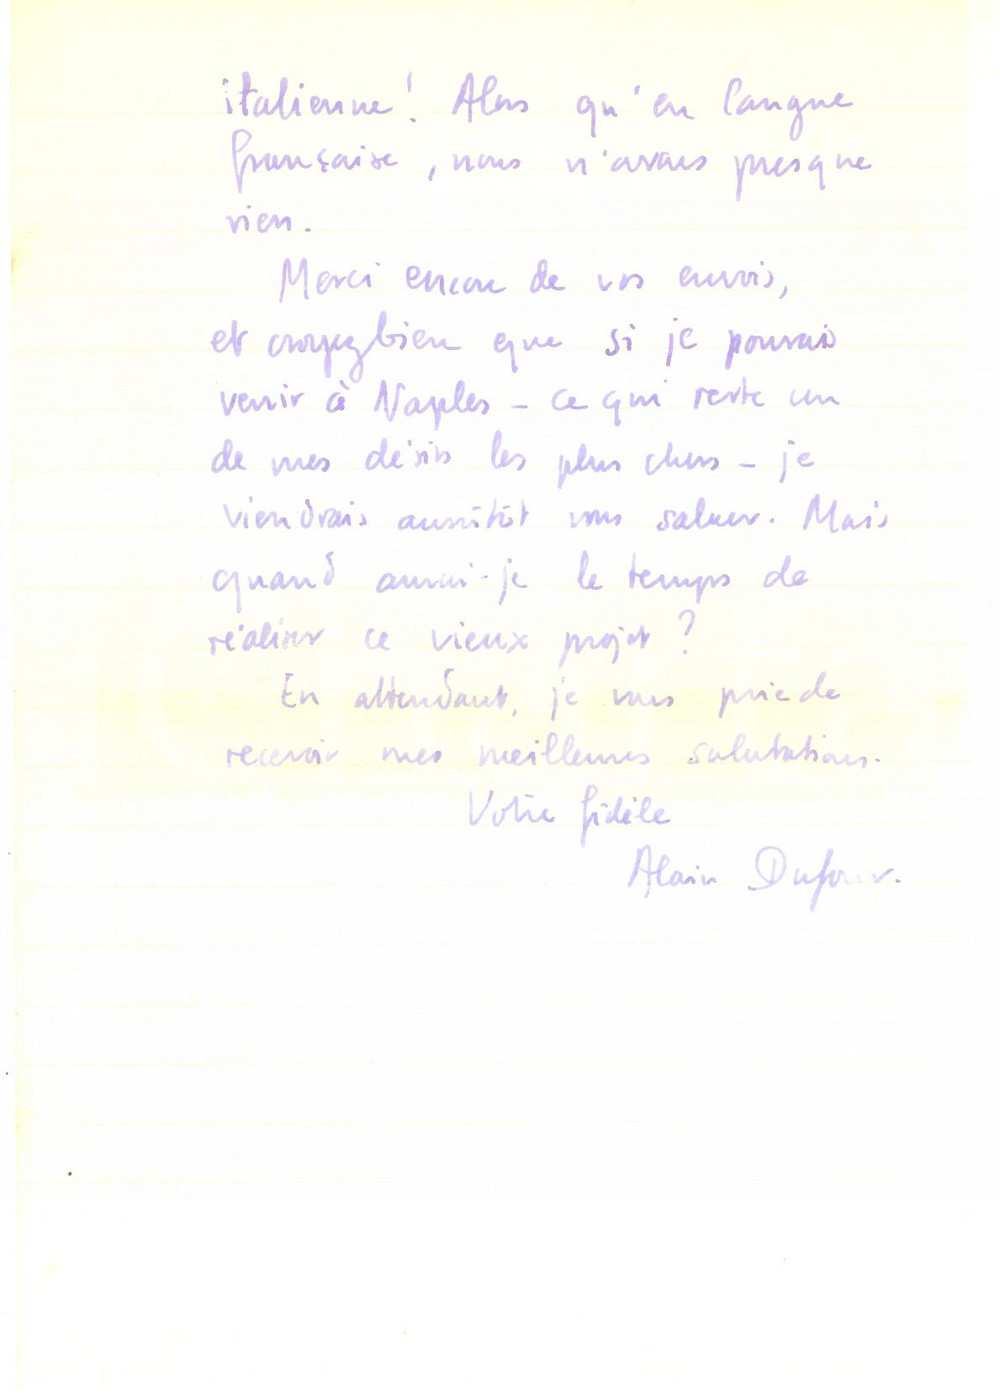 italienne! Alors qu'en langue
française, nous n'avons presque
rien.
Merci encore de vos envois,
et croyez bien que si je pouvais
venir à Naples - ce qui reste un
de mes désirs les plus chers - je
viendrais aussitôt vous saluer. Mais
quand aurai-je le temps de
réaliser ce vieux projet?
En attendant, je vous prie de
recevoir mes meilleures salutations.
Votre fidèle
Alain Dufour.